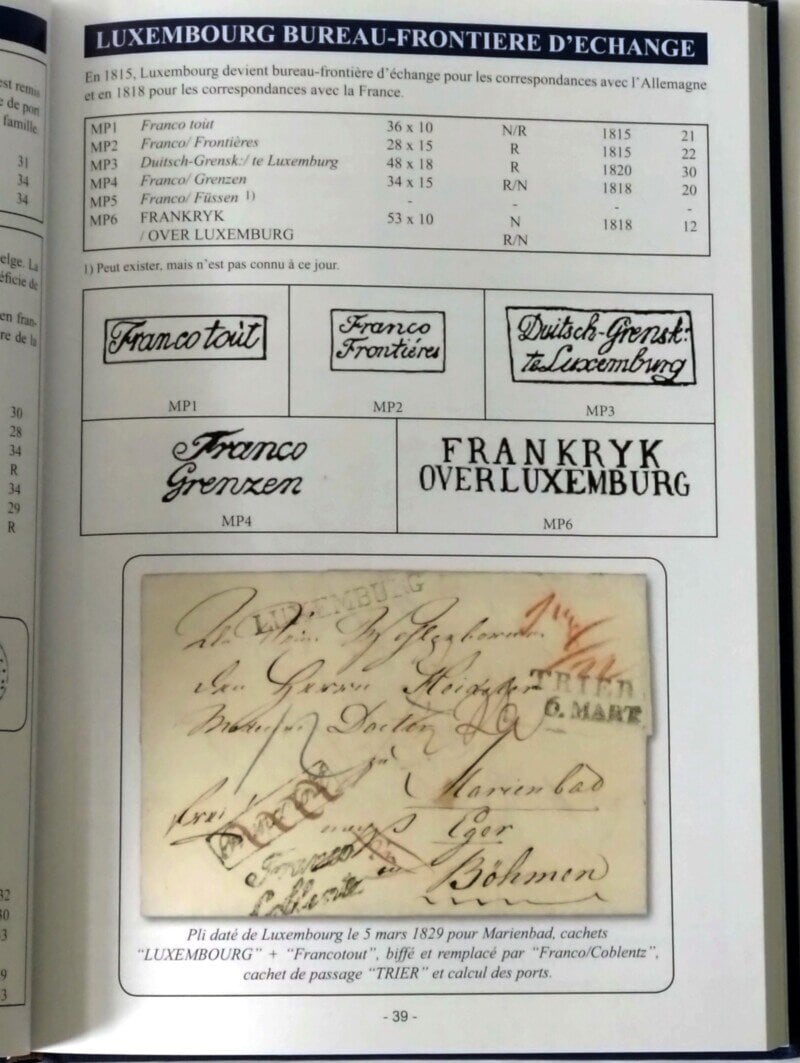 LUXEMBOURG BUREAU-FRONTIERE D'ECHANGE
En 1815, Luxembourg devient bureau-frontière d'échange pour les correspondances avec l'Allemagne
et en 1818 pour les correspondances avec la France.
MP1 Franco tout 36 x 10 N/R 1815 21
MP2 Franco/ Frontières 28 x 15 R 1815 22
MP3 Duitsch-Grensk:/ te Luxemburg 48 x 18 R 1820 30
MP4 Franco/ Grenzen 34 x 15 R/N 1818 20
MP5 Franco/ Füssen 1) - - - -
MP6 FRANKRYK 53 x 10 N 1818 12
/ OVER LUXEMBURG R/N
1) Peut exister, mais n'est pas connu à ce jour.
Franco toùt
MP1
Franco
Frontiéres
MP2
Duitsch-Grensk:
te Luxemburg
MP3
Franco
Grenzen
MP4
FRANKRYK
OVER LUXEMBURG
MP6
LUXEMBURG
den Herrn
TRIER
6. MART
Docter
Marienbad
Eger
Franco
Coblentz
Böhmen
Pli daté de Luxembourg le 5 mars 1829 pour Marienbad, cachets
"LUXEMBOURG" + "Francotout", biffé et remplacé par "Franco/Coblentz",
cachet de passage "TRIER" et calcul des ports.
- 39 -
est remis
e de port
famille
31
34
34
elge. La
éficie de
en fran-
re de la
30
28
34
R
34
29
R
32
30
3
9
3